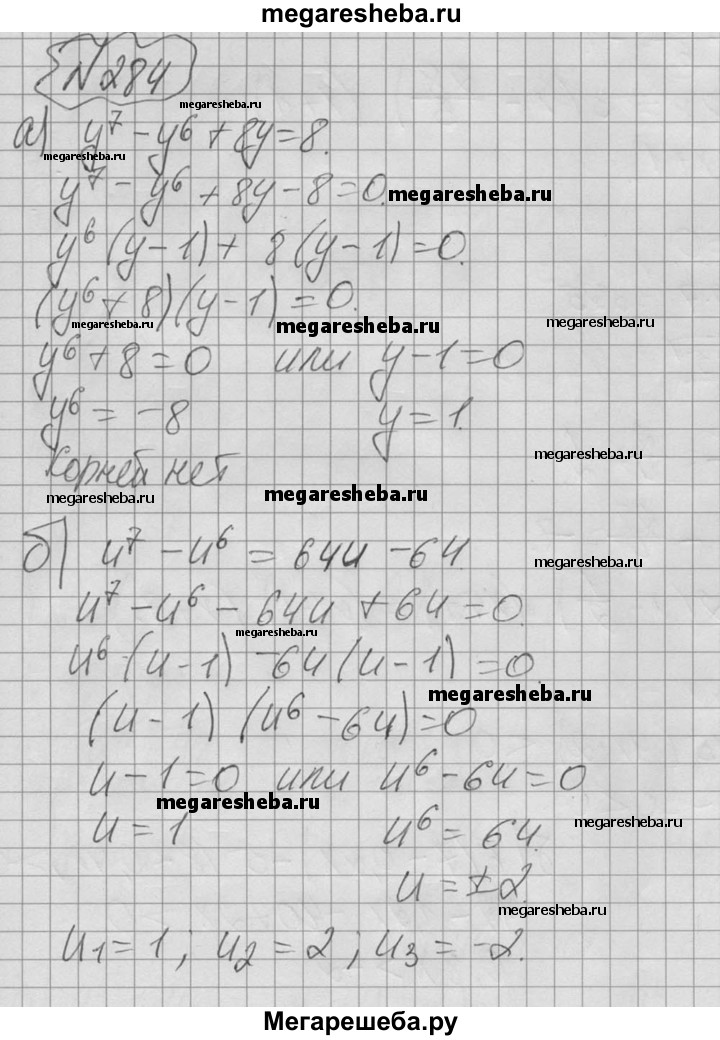 megaresheba.ru
N 284
megaresheba.ru
а) y⁷ - y⁶ + 8y = 8.
megaresheba.ru
y⁷ - y⁶ + 8y - 8 = 0.
megaresheba.ru
y⁶ (y - 1) + 8 (y - 1) = 0.
(y⁶ + 8) (y - 1) = 0.
megaresheba.ru
megaresheba.ru
megaresheba.ru
y⁶ + 8 = 0 или y - 1 = 0
y⁶ = -8 y = 1.
megaresheba.ru
Корней нет
megaresheba.ru
megaresheba.ru
б) u⁷ - u⁶ = 64u - 64
megaresheba.ru
u⁷ - u⁶ - 64u + 64 = 0.
megaresheba.ru
u⁶ (u - 1) - 64 (u - 1) = 0.
megaresheba.ru
(u - 1) (u⁶ - 64) = 0
u - 1 = 0 или u⁶ - 64 = 0
megaresheba.ru
u = 1 u⁶ = 64.
megaresheba.ru
u = ±2.
megaresheba.ru
u₁ = 1; u₂ = 2; u₃ = -2.
Мегарешеба.ру